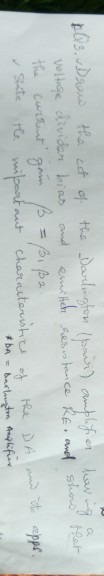 Q3. Draw the cct of the Darlington (pair) amplifier having a
voltage divider bias and emitter resistance RE. and show that
the current gain β = β1β2
State the important characteristics of the DA and its apps.
* DA = Darlington Amplifier